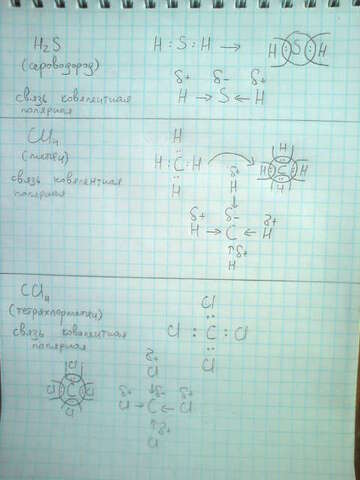 H₂S
H : S : H → H : S : H
(сероводород)
δ+ δ- δ+
H → S ← H
связь ковалентная
полярная
CH₄
(метан)
H
H : C : H
H
связь ковалентная
полярная
H
H C H
H
δ+
H
δ+ δ- δ+
H → C ← H
↑ δ+
H
CCl₄
(тетрахлорметан)
связь ковалентная
полярная
Cl
Cl : C : Cl
Cl
Cl
Cl C Cl
Cl
δ+
Cl
δ+ δ- δ+
Cl → C ← Cl
↑ δ+
Cl